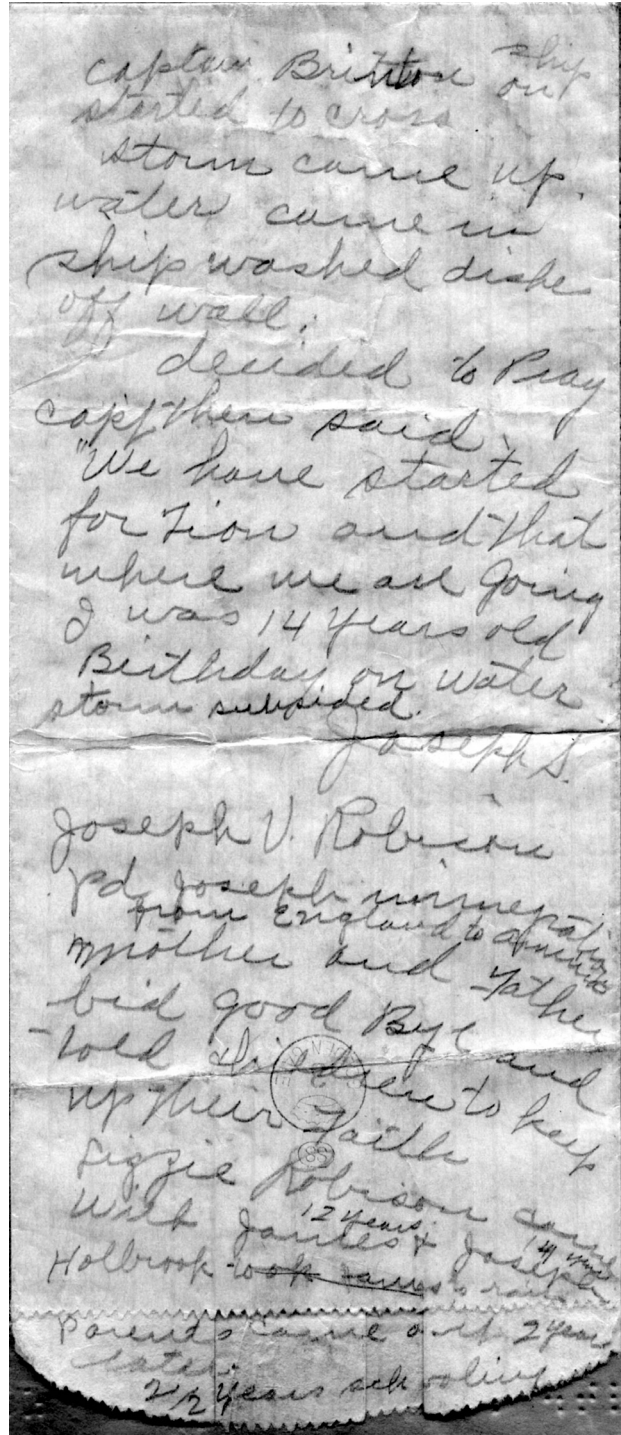 captain Britton ship
on
started to cross
storm came up.
water came in
ship washed dishe
off wall.
decided to Pray
capt then said.
"We have started
for Zion and that
where we are going
I was 14 years old
Birthday on water
storm subsided.
Joseph S.
Joseph V. Robison
pd. Joseph
from England to
mother and Father
bid good Bye and
told children to keep
up their faith
Lizzie Robison came
12 years 14 years
With James & Joseph
Holbrook took James's
Parents came out 2 years
later.
2 1/2 years schooling